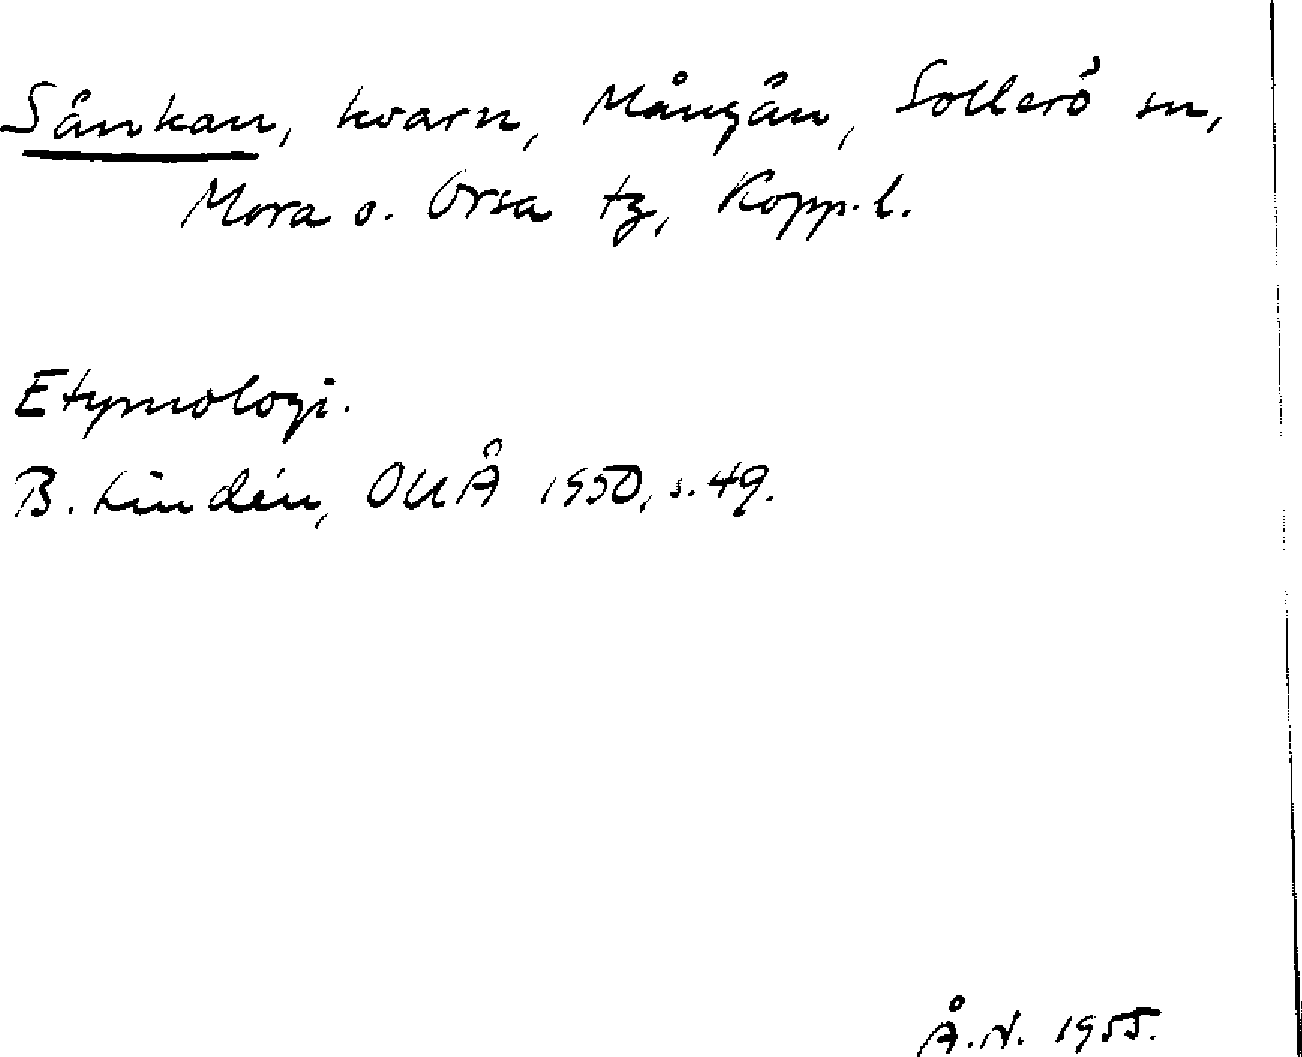 Sånkan, kvarn, Mångån, Sollerö sn,
Mora o. Orsa tg, Kopp. l.
Etymologi.
B. Lindén, OUÅ 1950, s. 49.
Å. N. 1955.